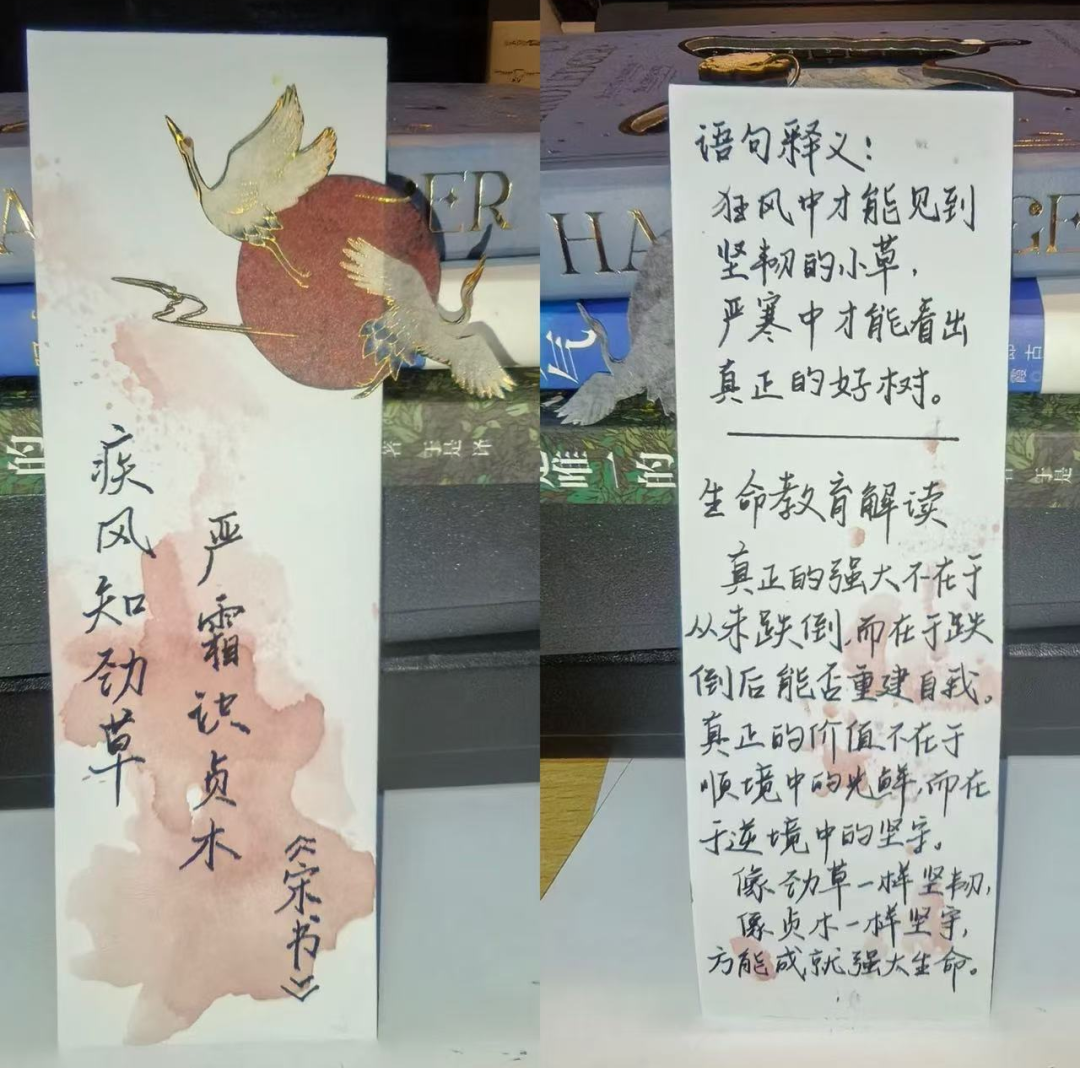 疾风知劲草
严霜识贞木
《宋书》
语句释义：
狂风中才能见到
坚韧的小草，
严寒中才能看出
真正的好树。
生命教育解读
真正的强大不在于
从未跌倒，而在于跌
倒后能否重建自我。
真正的价值不在于
顺境中的光鲜，而在
于逆境中的坚守。
像劲草一样坚韧，
像贞木一样坚守，
方能成就强大生命。
GER
HA
GER
唯一的
的
于是 译
于是